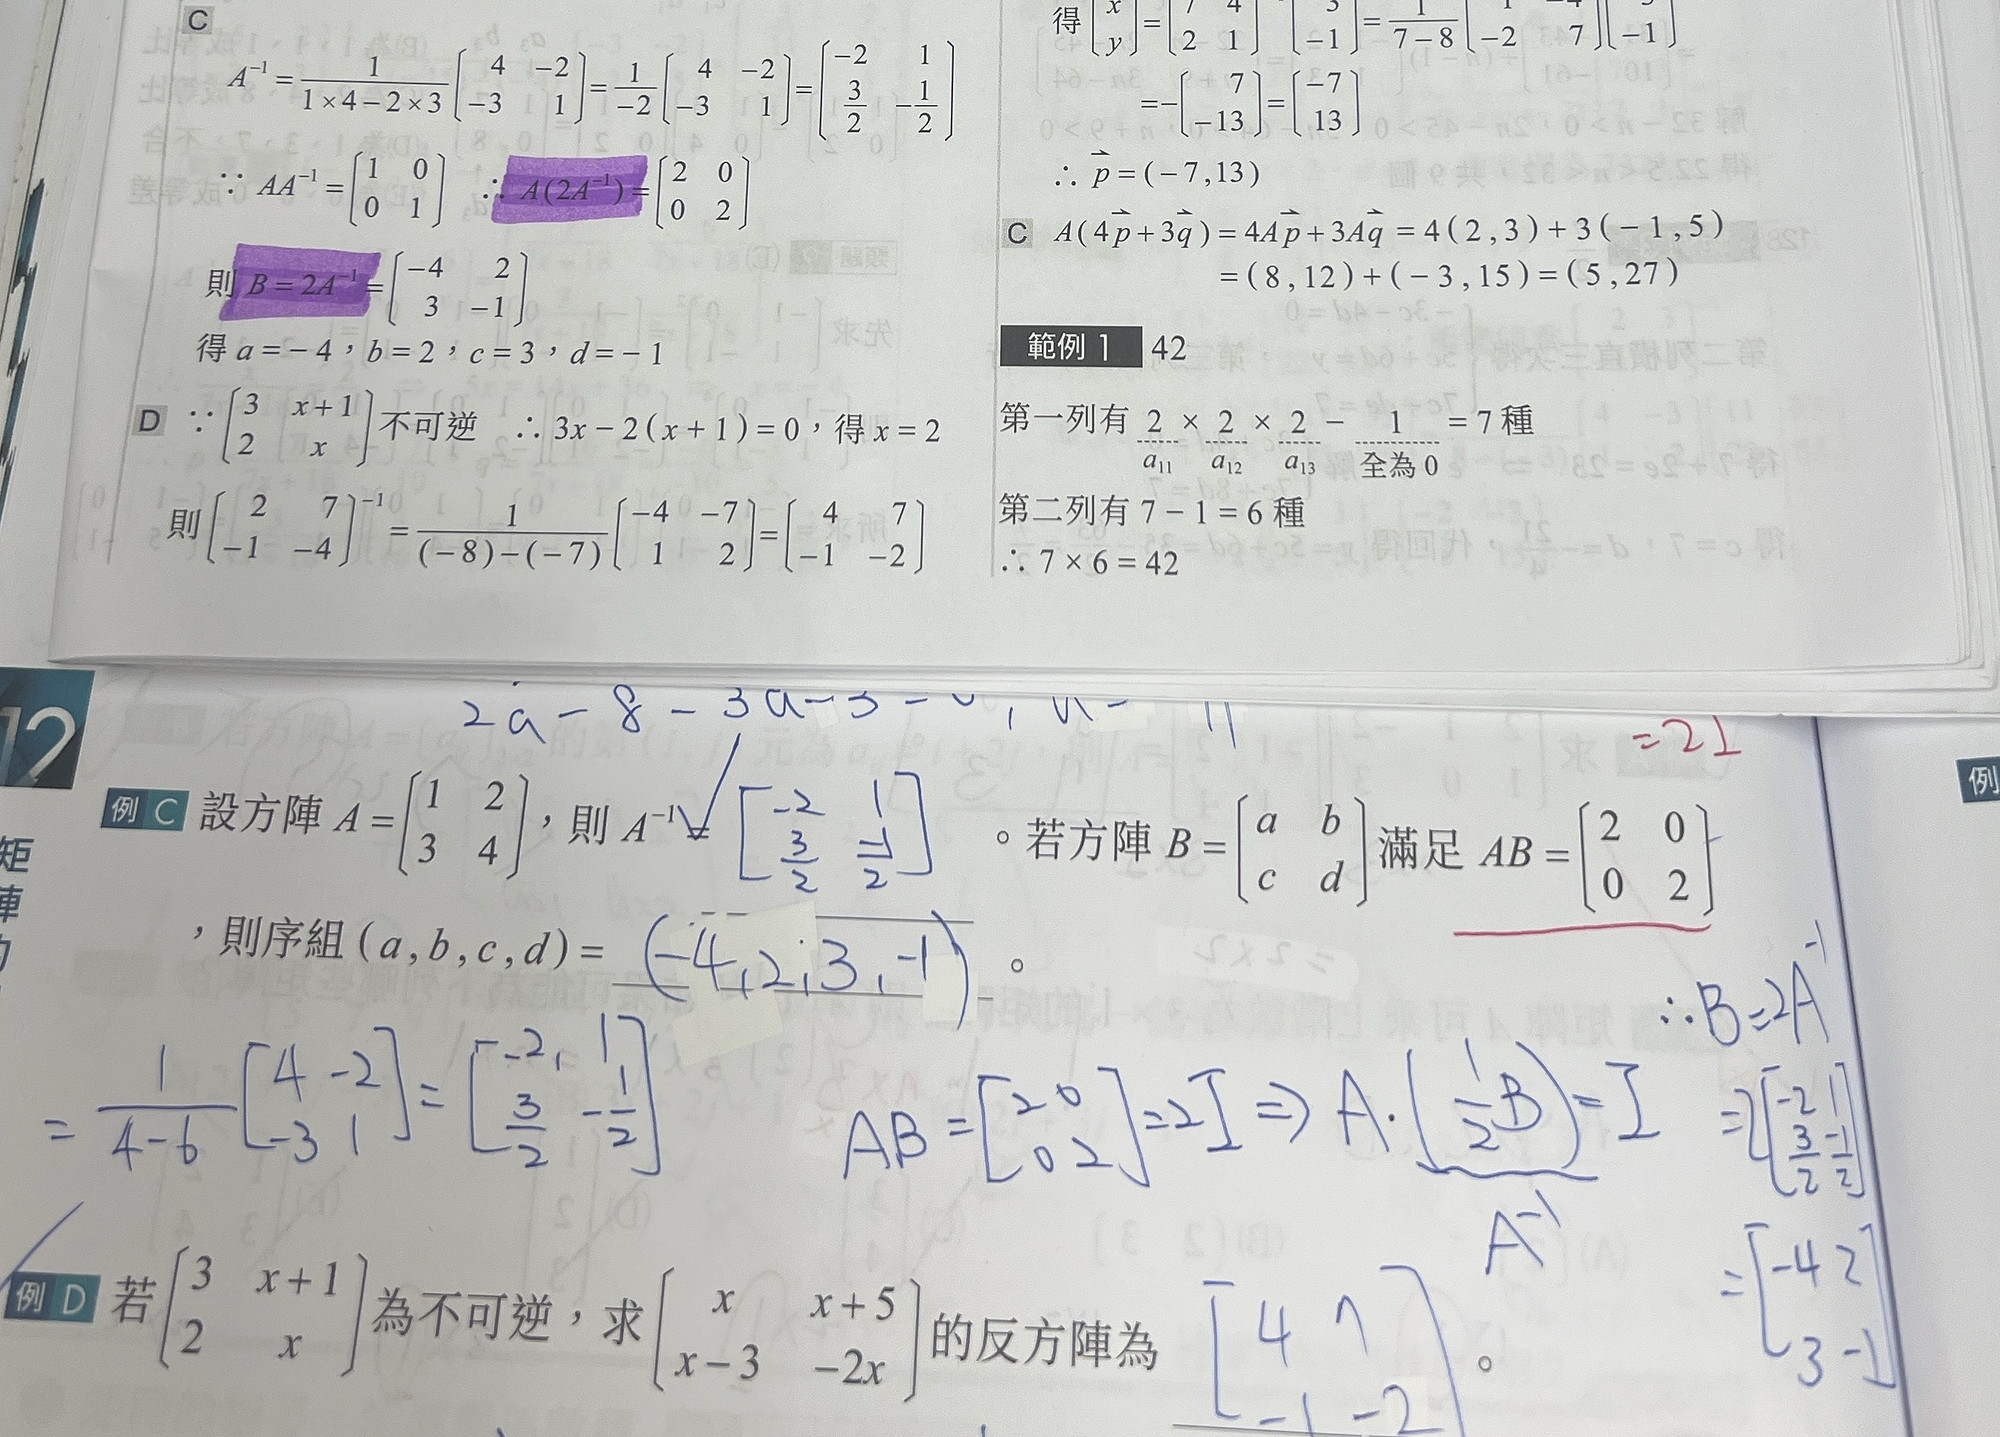 C
A⁻¹ = 1/(1×4−2×3) [4 −2; −3 1] = 1/−2 [4 −2; −3 1] = [−2 1; 3/2 −1/2]
∵ AA⁻¹ = [1 0; 0 1] ∴ A(2A⁻¹) = [2 0; 0 2]
則 B = 2A⁻¹ = [−4 2; 3 −1]
得 a = −4,b = 2,c = 3,d = −1
D ∵ [3 x+1; 2 x] 不可逆 ∴ 3x − 2(x+1) = 0,得 x = 2
則 [2 7; −1 −4]⁻¹ = 1/((−8)−(−7)) [−4 −7; 1 2] = [4 7; −1 −2]
得 [x; y] = [7 4; 2 1] [3; −1] = 1/(7−8) [1 −4; −2 7] [3; −1]
= −[7; −13] = [−7; 13]
∴ p⃗ = (−7, 13)
C A(4p⃗ + 3q⃗) = 4Ap⃗ + 3Aq⃗ = 4(2, 3) + 3(−1, 5)
= (8, 12) + (−3, 15) = (5, 27)
範例 1 42
第一列有 2 × 2 × 2 − 1 = 7 種
a₁₁ a₁₂ a₁₃ 全為 0
第二列有 7 − 1 = 6 種
∴ 7 × 6 = 42
12
矩
陣
2a − 8 − 3a − 3
= 2I
例
例 C 設方陣 A = [1 2; 3 4],則 A⁻¹ = [-2 1; 3/2 -1/2]。若方陣 B = [a b; c d] 滿足 AB = [2 0; 0 2]
,則序組 (a, b, c, d) = (-4, 2, 3, -1)。
= 1/(4-6) [4 -2; -3 1] = [-2, 1; 3/2 -1/2]
AB = [2 0; 0 2] = 2I ⇒ A·(1/2 B) = I
A⁻¹
∴ B = 2A⁻¹
= 2[-2 1; 3/2 -1/2]
= [-4 2; 3 -1]
例 D 若 [3 x+1; 2 x] 為不可逆,求 [x x+5; x−3 −2x] 的反方陣為 [4 7; -1 -2]。